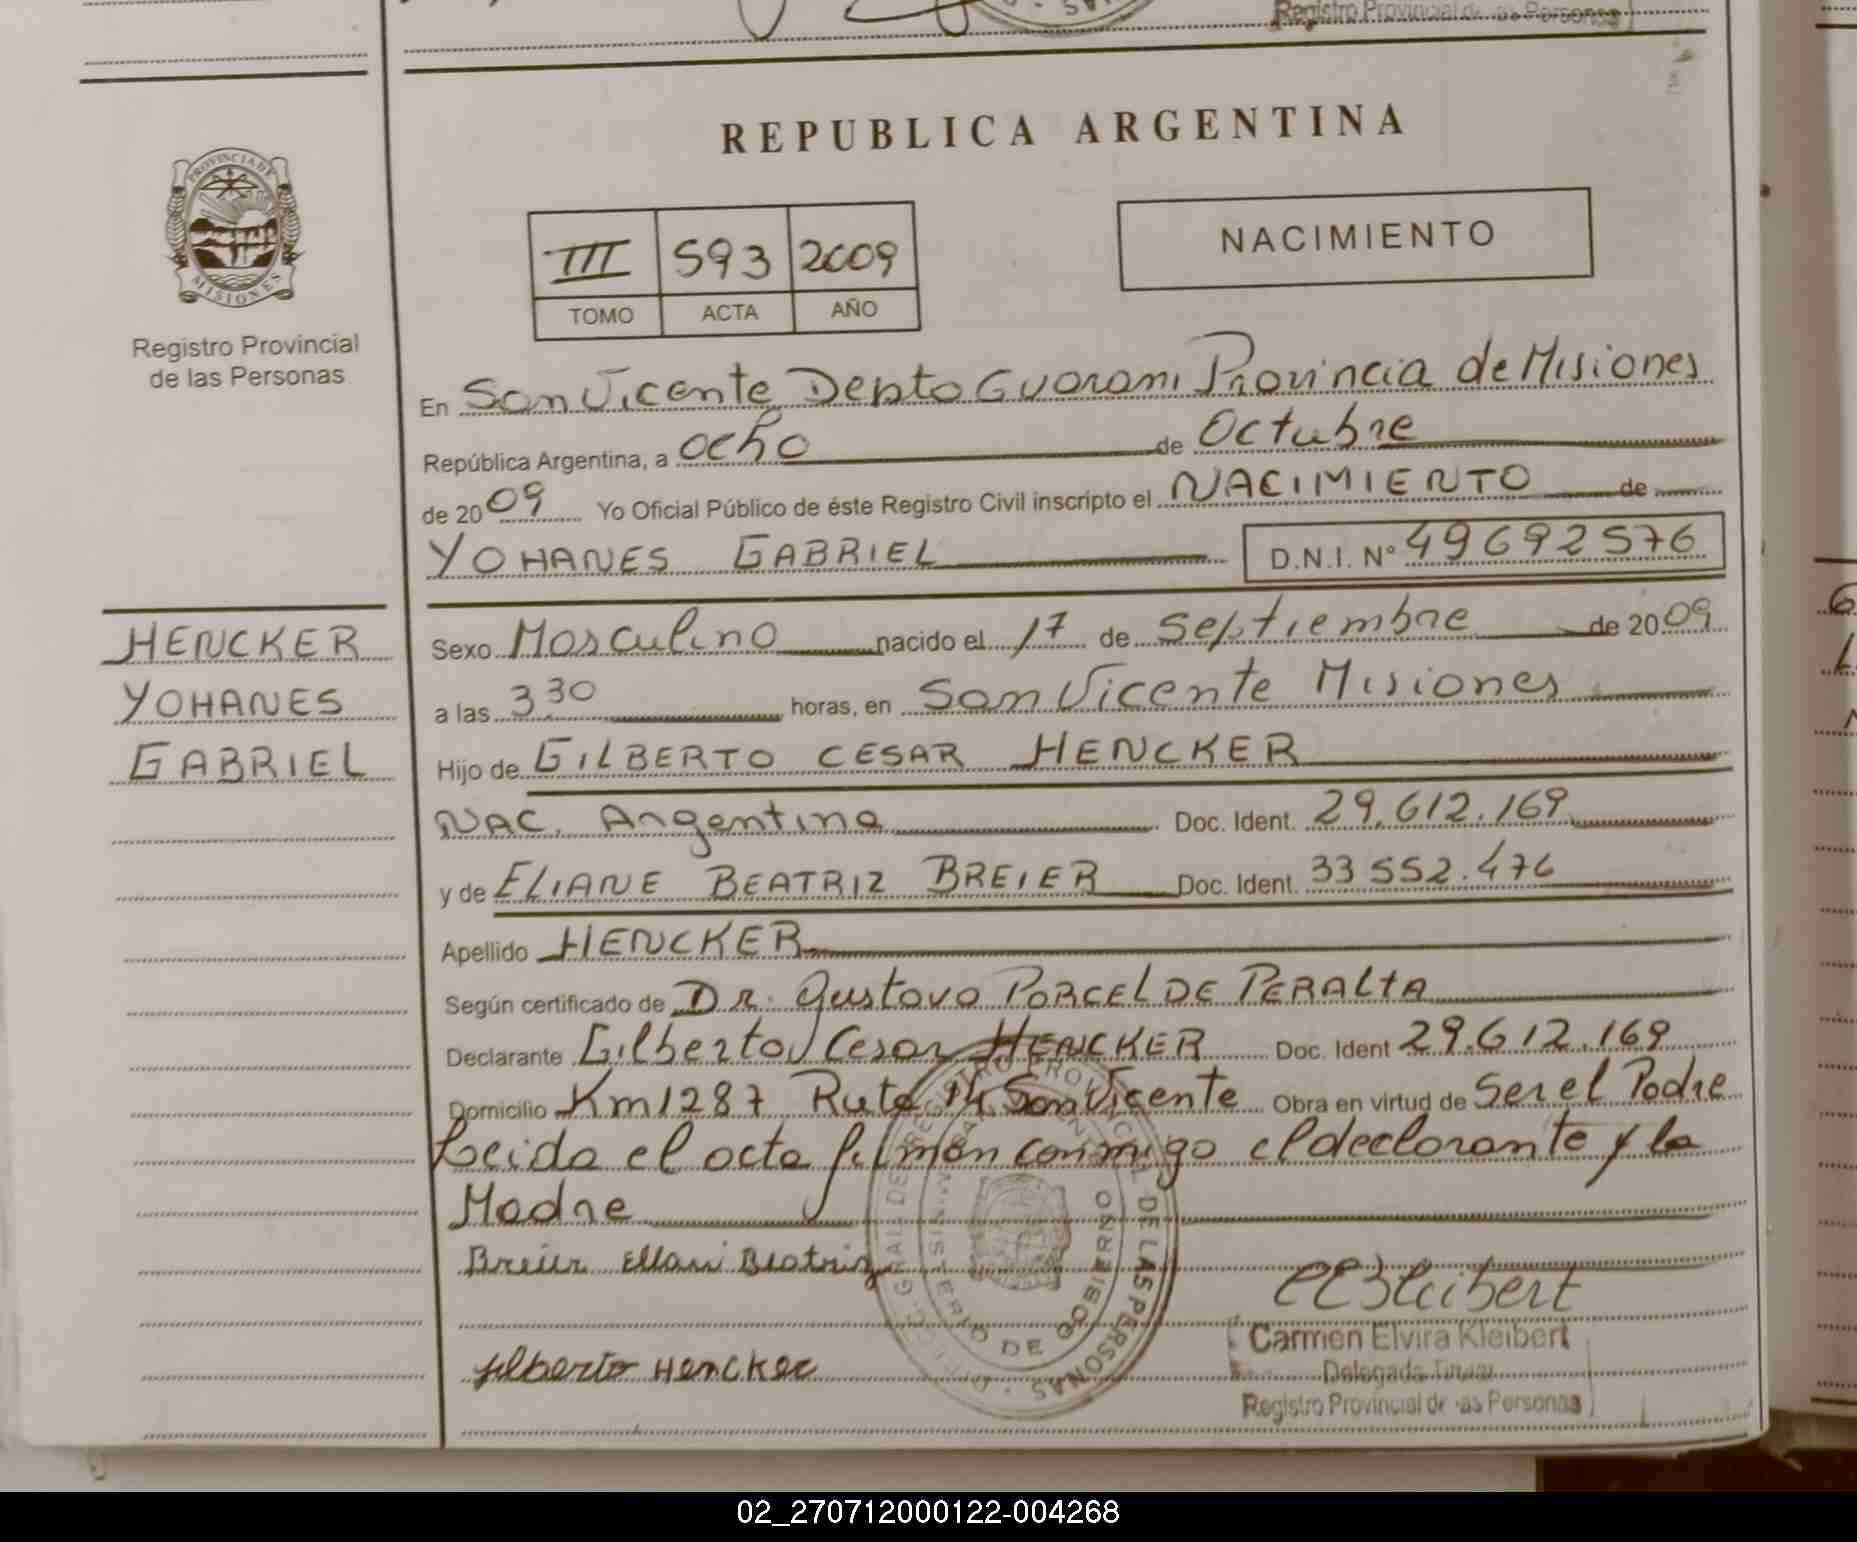 Registro Provincial de las Personas
REPUBLICA ARGENTINA
PROVINCIA DE
MISIONES
Registro Provincial
de las Personas
III 593 2009
TOMO ACTA AÑO
NACIMIENTO
En San Vicente Depto Guarani Provincia de Misiones
República Argentina, a ocho de Octubre
de 2009 Yo Oficial Público de éste Registro Civil inscripto el NACIMIENTO de
YOHANES GABRIEL D.N.I. Nº 49692576
HENCKER
YOHANES
GABRIEL
Sexo Masculino nacido el 17 de Septiembre de 2009
a las 3 30 horas, en San Vicente Misiones
Hijo de GILBERTO CESAR HENCKER
NAC. Argentina Doc. Ident. 29.612.169
y de ELIANE BEATRIZ BREIER Doc. Ident. 33552.476
Apellido HENCKER
Según certificado de Dr. Gustavo PORCEL DE PERALTA
Declarante Gilberto Cesar HENCKER Doc. Ident 29.612.169
Domicilio Km 1287 Ruta 14 San Vicente Obra en virtud de Ser el Padre
Leida el acta firman conmigo el declarante y la
Madre
Breier Beatriz
Gilberto Hencker
DE LAS PERSONAS
Carmen Elvira Kleibert
Delegada Titular
Registro Provincial de las Personas
02_270712000122-004268